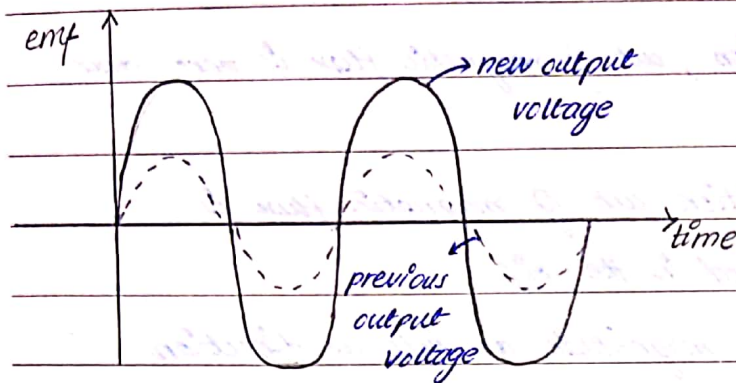 emf
new output
voltage
time
previous
output
voltage